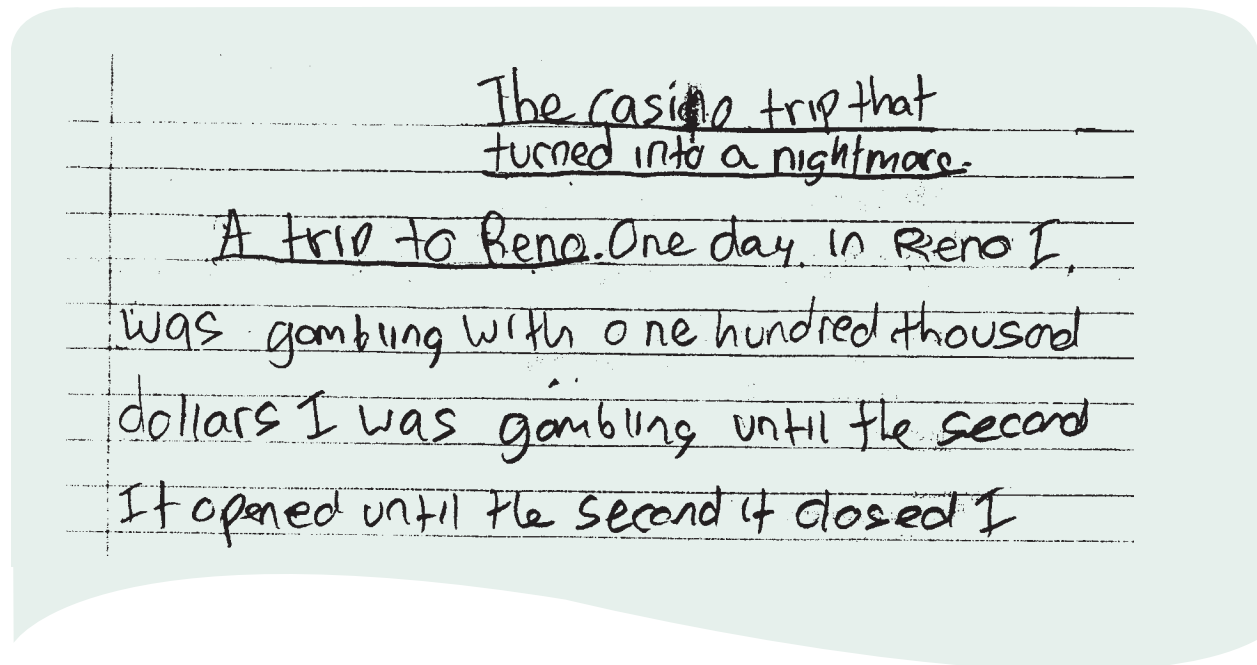 The casino trip that
turned into a nightmare.
A trip to Reno. One day. in Reno I.
was gambling with one hundred thousad
dollars I was gambling until the second
It opened until the second it closed I